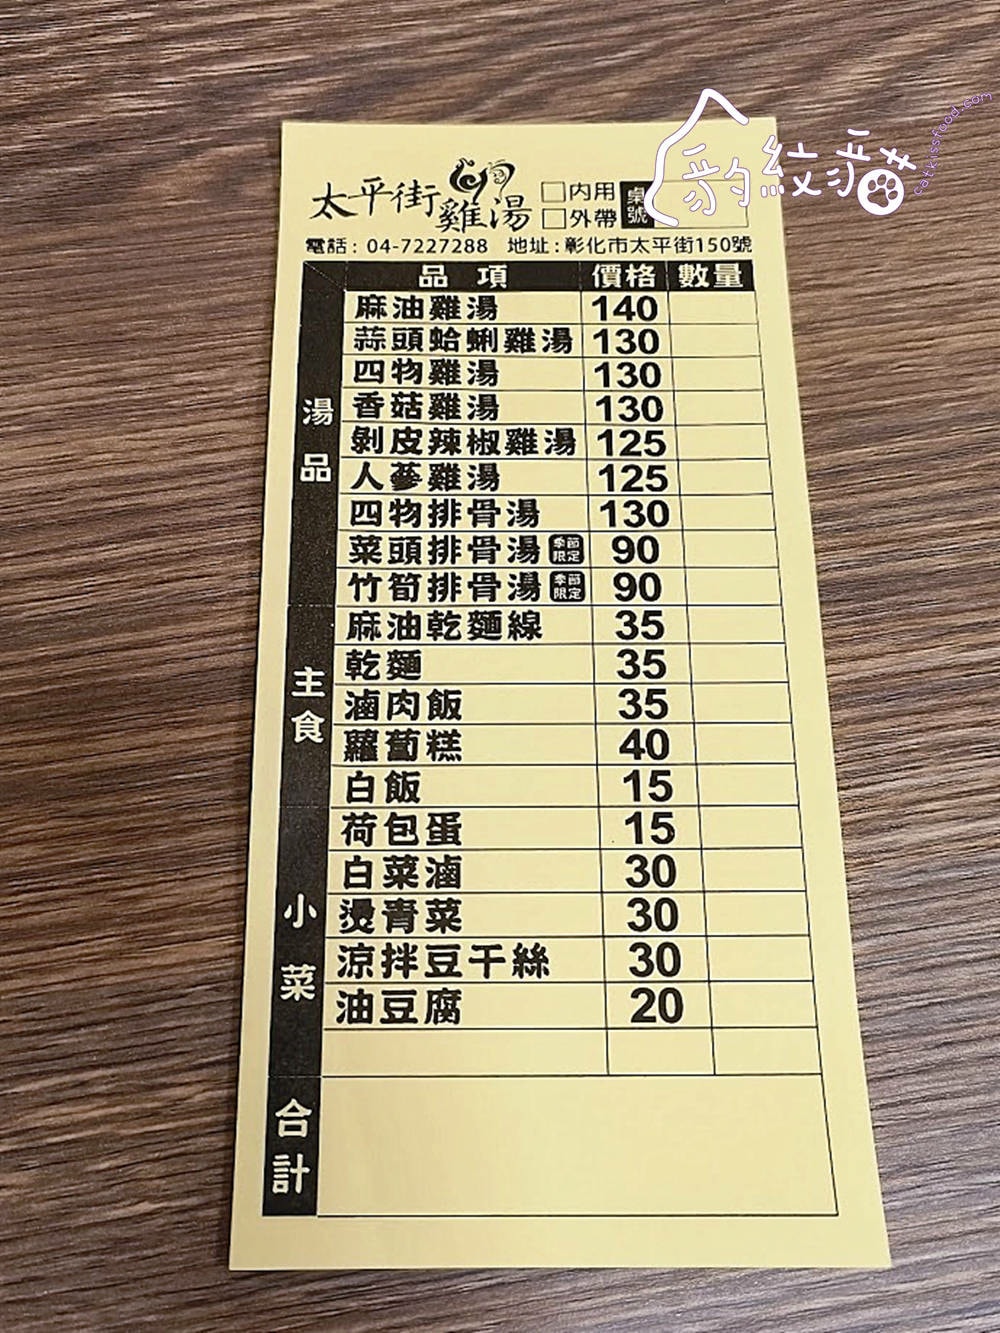 豹紋貓
catkissfood.com
太平街雞湯
□內用
□外帶
桌號
電話：04-7227288 地址：彰化市太平街150號
品項 價格 數量
湯品
麻油雞湯 140
蒜頭蛤蜊雞湯 130
四物雞湯 130
香菇雞湯 130
剝皮辣椒雞湯 125
人蔘雞湯 125
四物排骨湯 130
菜頭排骨湯 季節限定 90
竹筍排骨湯 季節限定 90
主食
麻油乾麵線 35
乾麵 35
滷肉飯 35
蘿蔔糕 40
白飯 15
小菜
荷包蛋 15
白菜滷 30
燙青菜 30
涼拌豆干絲 30
油豆腐 20
合計